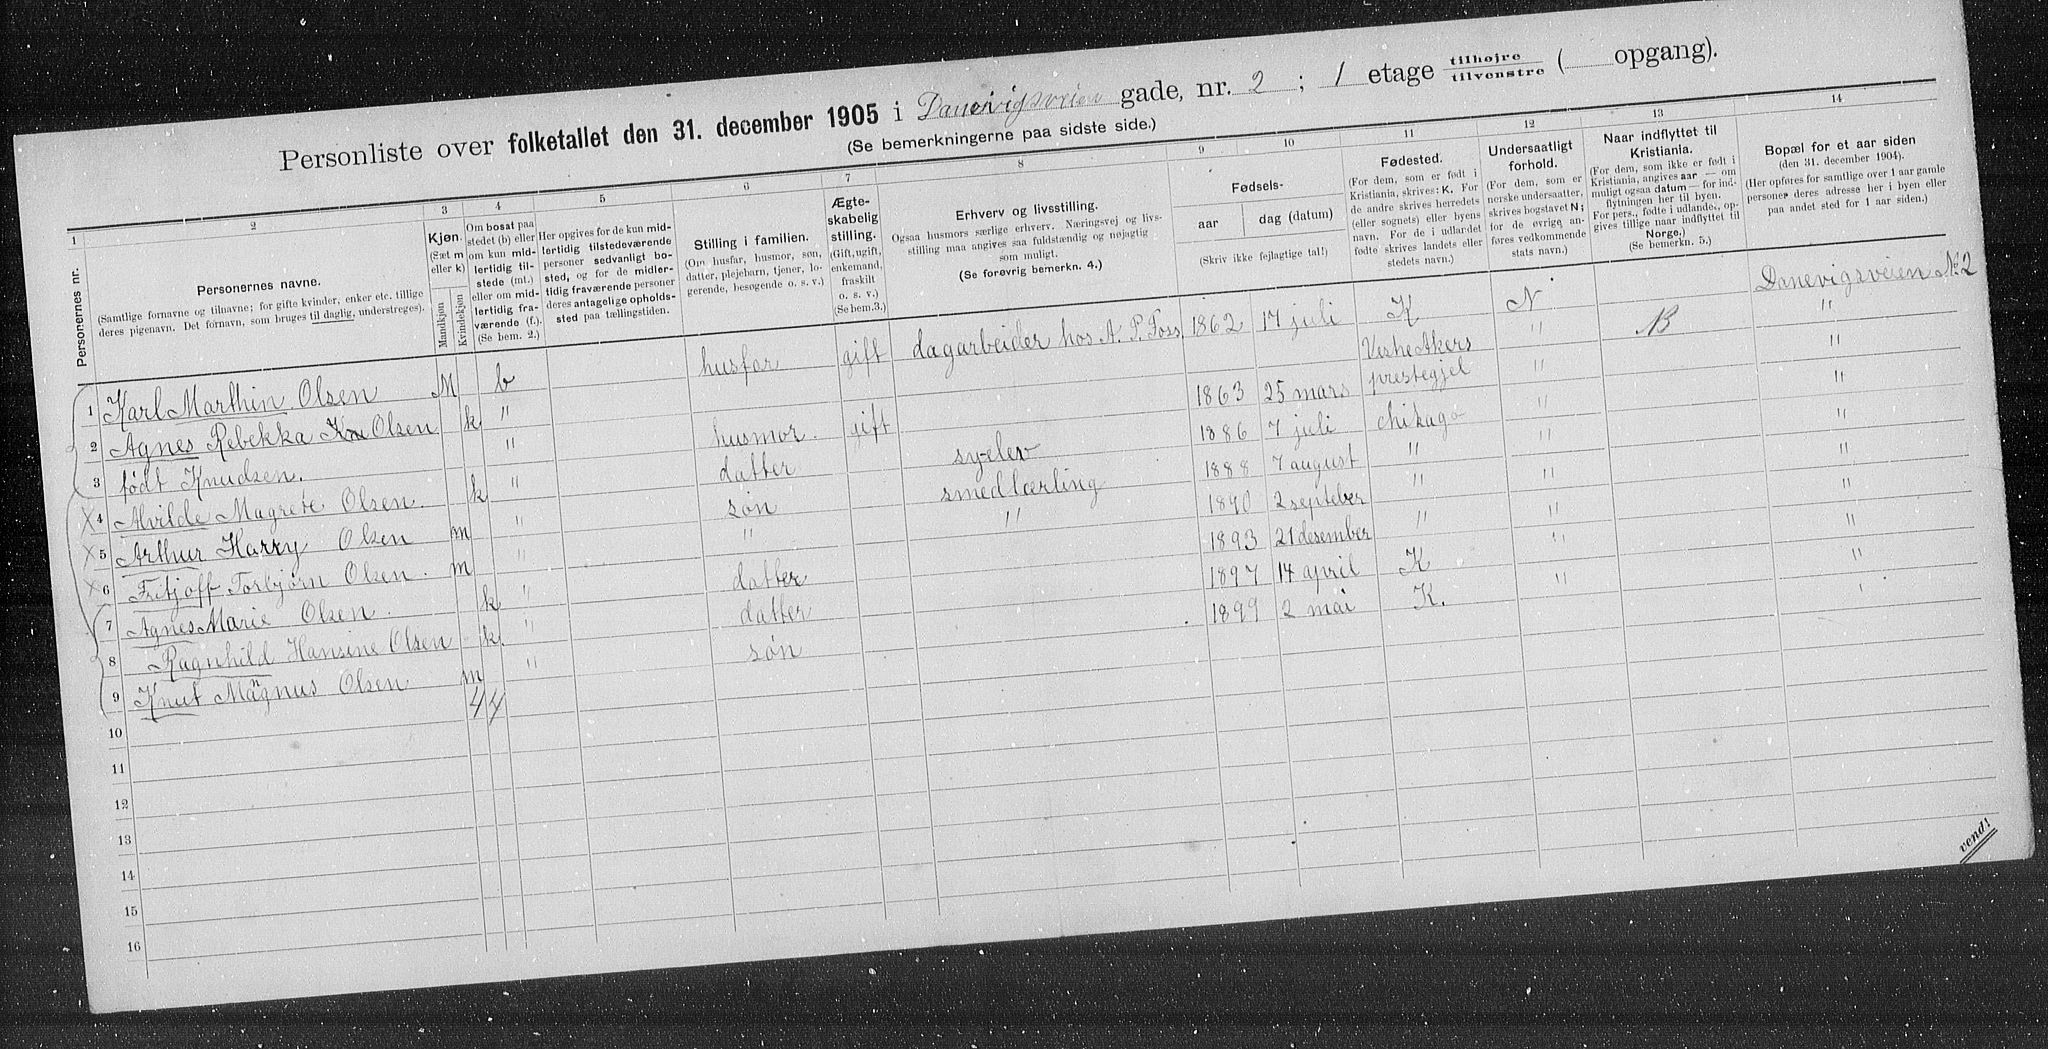 Personliste over folketallet den 31. december 1905 i Danevigsveien gade, nr. 2 ; 1 etage tilhøjre / tilvenstre ( opgang).
(Se bemerkningerne paa sidste side.)
1 2 3 4 5 6 7 8 9 10 11 12 13 14
Personernes nr.
Personernes navne.
(Samtlige fornavne og tilnavne; for gifte kvinder, enker etc. tillige
deres pigenavn. Det fornavn, som bruges til daglig, understreges).
Kjøn.
(Sæt m
eller k)
Mandkjøn
Kvindekjøn
Om bosat paa
stedet (b) eller
om kun mid-
lertidig til-
stede (mt.)
eller om mid-
lertidig fra-
værende (f.).
(Se bem. 2.)
Her opgives for de kun mid-
lertidig tilstedeværende
personer sedvanligt bo-
sted, og for de midler-
tidig fraværende personer
deres antagelige opholds-
sted paa tællingstiden.
Stilling i familien.
(Om husfar, husmor, søn,
datter, plejebarn, tjener, lo-
gerende, besøgende o. s. v.)
Ægte-
skabelig
stilling.
(Gift, ugift,
enkemand,
fraskilt
o. s. v.)
(Se bem.3.)
Erhverv og livsstilling.
Ogsaa husmors særlige erhverv. Næringsvej og livs-
stilling maa angives saa fuldstændig og nøjagtig
som muligt.
(Se forøvrig bemerkn. 4.)
Fødsels-
aar dag (datum)
(Skriv ikke fejlagtige tal!)
Fødested.
(For dem, som er født i
Kristiania, skrives: K. For
de andre skrives herredets
(eller sognets) eller byens
navn. For de i udlandet
fødte skrives landets eller
stedets navn.)
Undersaatligt
forhold.
(For dem, som er
norske undersaatter,
skrives bogstavet N;
for de øvrige an-
føres vedkommende
stats navn.)
Naar indflyttet til
Kristiania.
(For dem, som ikke er født i
Kristiania, angives aar — om
muligt ogsaa datum — for ind-
flytningen her til byen.
For pers., fødte i udlandet, op-
gives tillige naar indflyttet til
Norge.)
(Se bemerkn. 5.)
Bopæl for et aar siden
(den 31. december 1904).
(Her opføres for samtlige over 1 aar gamle
personer deres adresse her i byen eller
paa andet sted for 1 aar siden.)
1 Karl Marthin Olsen M b husfar gift dagarbeider hos A. P. Foss 1862 17 juli K N Danevigsveien No 2
2 Agnes Rebekka Olsen k " husmor. gift 1863 25 mars Vestre Akers prestegjel " B "
3 født Knudsen. "
4 Alvilde Magrete Olsen. k " datter syelev 1886 7 juli chikago " "
5 Arthur Harry Olsen m " søn smedlærling 1888 7 august " " "
6 Fritjoff Torbjørn Olsen. m " " " 1890 2 septeber " " "
7 Agnes Marie Olsen. k " datter 1893 21 desember " " "
8 Ragnhild Hansine Olsen k. " datter 1897 14 april K " "
9 Knut Magnus Olsen m " søn 1899 2 mai K. " "
4 4
10
11
12
13
14
15
16
vend!